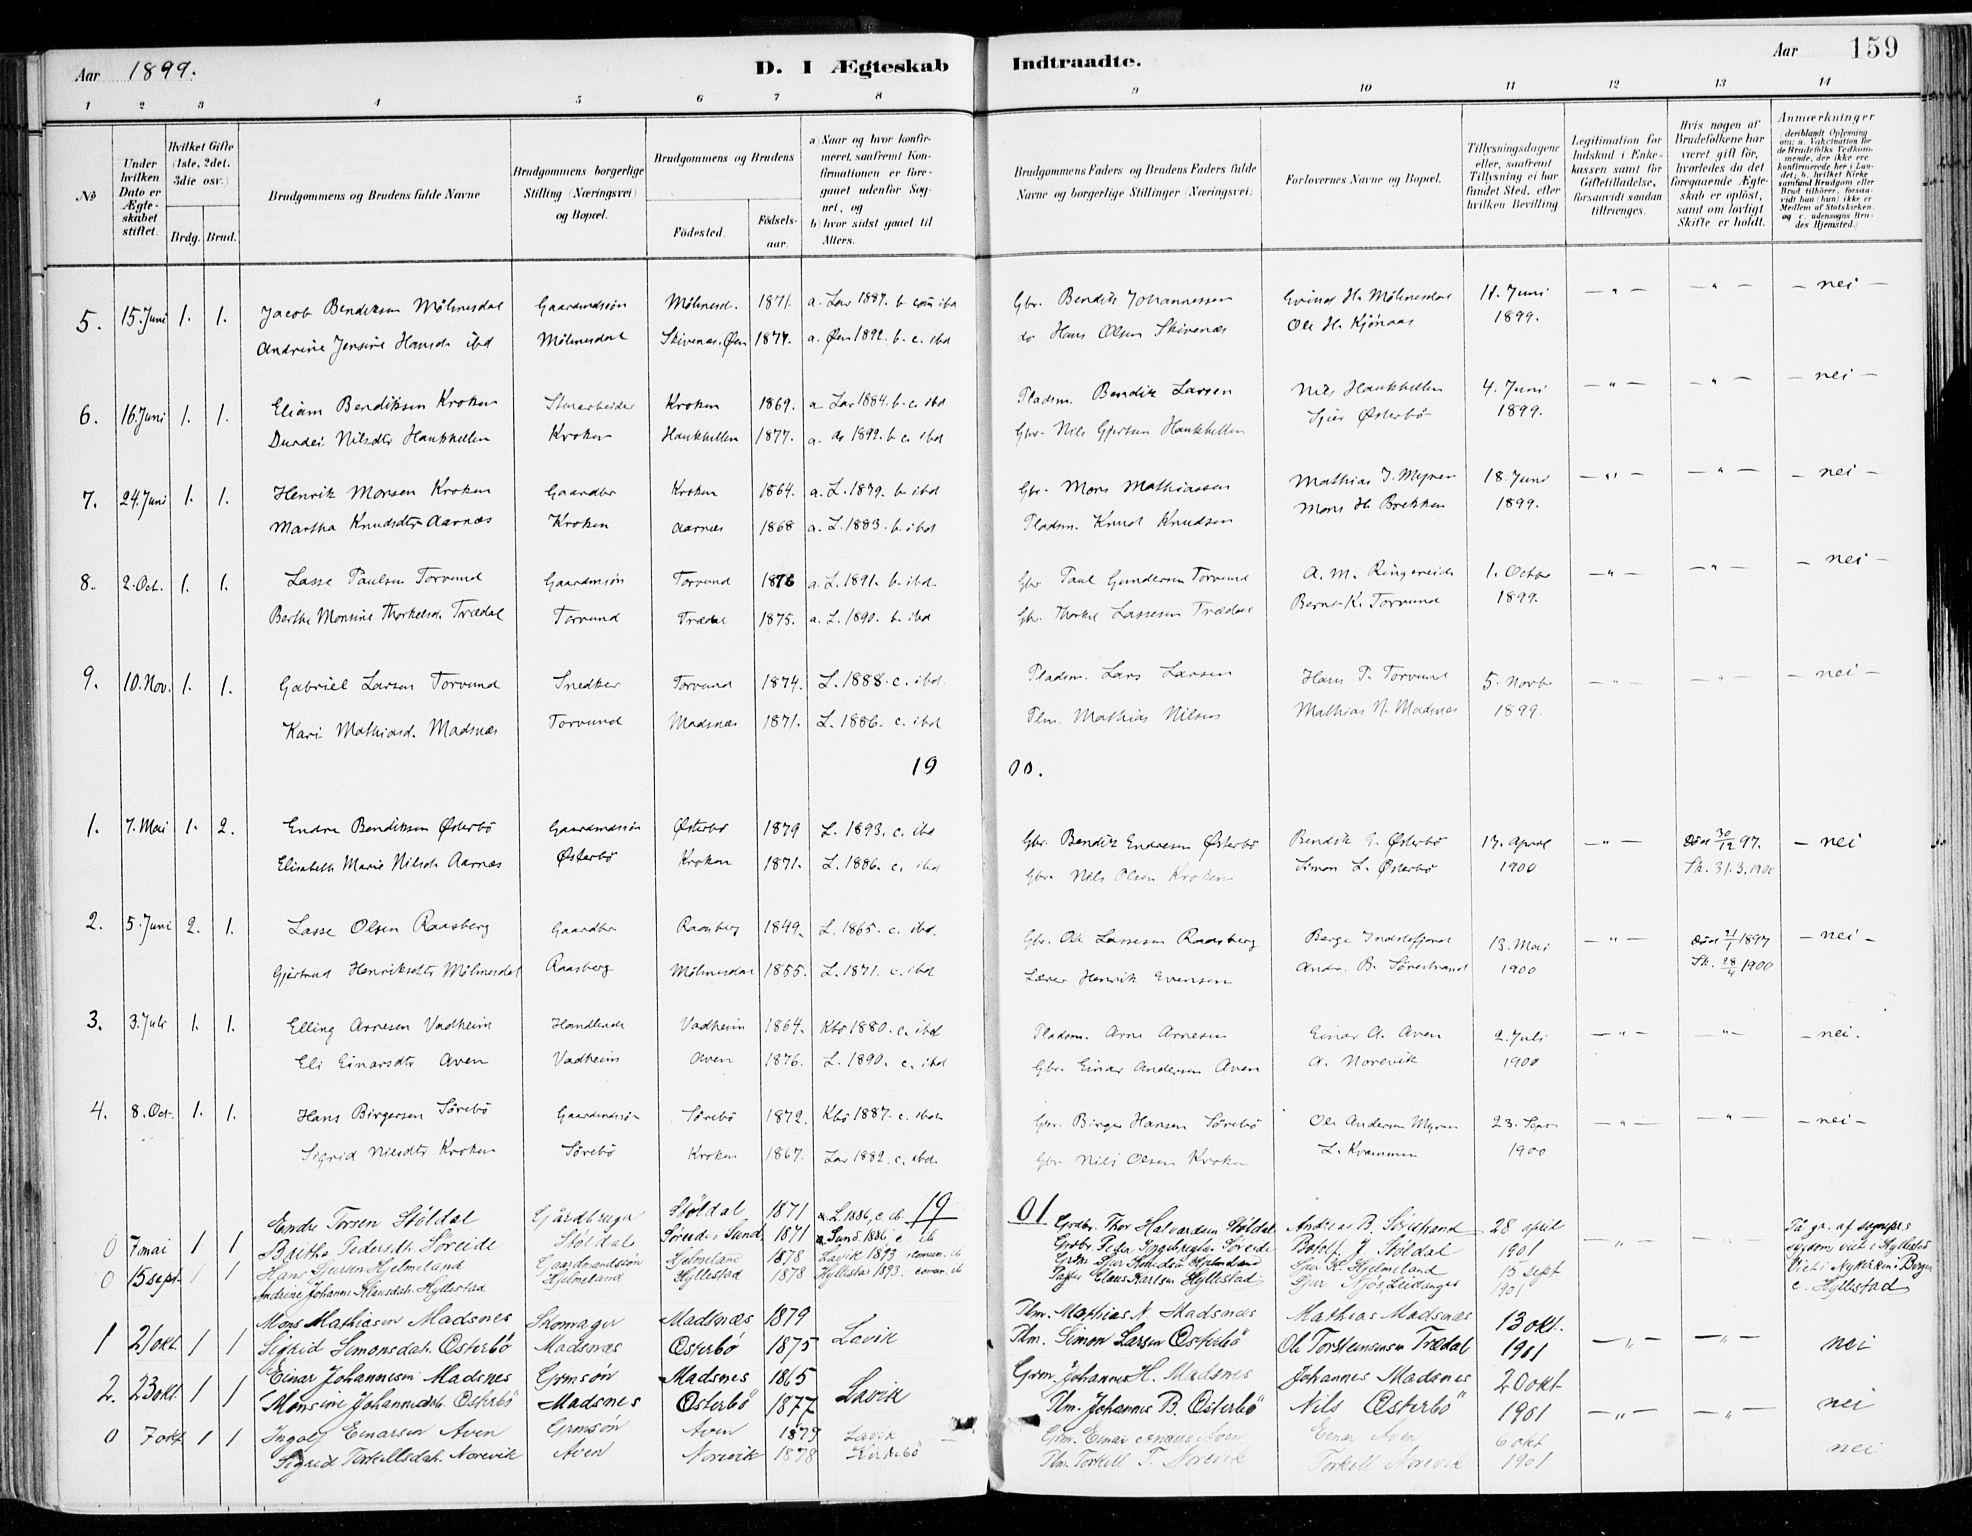 Aar 1899.
D. I Ægteskab Indtraadte.
Aar 159
1 2 3 4 5 6 7 8 9 10 11 12 13 14
No.
Under hvilken Dato er Ægteskabet stiftet.
Hvilket Gifte (1ste, 2det, 3die osv.)
Brdg. Brud.
Brudgommens og Brudens fulde Navne
Brudgommens borgerlige Stilling (Næringsvei) og Bopæl.
Brudgommens og Brudens
Fødested. Fødselsaar.
a) Naar og hvor konfirmeret, saafremt Konfirmationen er foregaaet udenfor Sognet, og
b) hvor sidst gaaet til Alters.
Brudgommens Faders og Brudens Faders fulde Navne og borgerlige Stillinger (Næringsvei)
Forlovernes Navne og Bopæl.
Tillysningsdagene eller, saafremt Tillysning ei har fundet Sted, efter hvilken Bevilling
Legitimation for Indskud i Enkekassen samt for Giftetilladelse, forsaavidt saadan tiltrænges.
Hvis nogen af Brudefolkene har været gift før, hvorledes da det foregaaende Ægteskab er opløst, samt om lovligt Skifte er holdt.
Anmærkninger (deriblandt Oplysning om: a. Vakcination for de Brudefolks Vedkommende, der ikke ere konfirmerede her i Landet; b. hvilket Kirkesamfund Brudgom eller Brud tilhører, forsaavidt han (hun) ikke er Medlem af Statskirken, og c. udensogns Brudes Hjemsted.)
5. 15. Juni 1. 1. Jacob Bendiksen Mølmesdal Gaardmdssøn Mølmesd. 1871. a. Lav 1887. b. com ibd Gbr. Bendik Johannessen Evind H. Mølmesdal 11. Juni — " — — " — — nei —
Andrine Jensine Hansd. ibd Mølmesdal Skivenæs. Øen 1874. a. Øen 1892. b. c. ibd do Hans Olsen Skivenæs Ole H. Kjønaas 1899.
6. 16. Juni 1. 1. Eliam Bendiksen Kroken Stenarbeider Kroken 1869. a. Lav 1884. b. c. ibd Pladsm. Bendik Larsen Nils Haukhellen 4. Juni — " — — " — — nei —
Durdei Nilsdtr Haukhellen Kroken Haukhellen 1877. a. do 1892. b. c. ibd Gbr. Nils Gjertsen Haukhellen Sjur Østerbø 1899.
7. 24. Juni 1. 1. Henrik Monsen Kroken Gaardbr Kroken 1864. a. L. 1879. b. ibd Gbr. Mons Mathiassen Mathias J. Myren 18. Juni — " — — " — — nei —
Martha Knudsdtr Aarnæs Kroken Aarnæs 1868 a. L. 1883. b. ibd Pladsm. Knud Knudsen Mons H. Brekken 1899.
8. 2. Oct. 1. 1. Lasse Paulsen Torvund Gaardmssøn Torvund 1876 a. L. 1891. b. ibd. Gbr Paul Gundersen Torvund A. M. Ringereide 1. Octbr — " — — " — — nei —
Berthe Monsine Thorkelsd. Trædal Torvund Trædal 1875. a. L. 1890. b. ibd Gbr. Thorkel Lassesen Trædal Bernt K. Torvund 1899.
9. 10. Nov. 1. 1. Gabriel Larsen Torvund Snedker Torvund 1874. L. 1888. c. ibd. Pladsm. Lars Larsen Hans P. Torvund 5. Novbr — " — — " — — nei —
Kari Mathiasd. Madsnæs Torvund Madsnæs 1871. L. 1886. c. ibd Plm. Mathias Nilsen Mathias N. Madsnæs 1899.
19 00.
1. 7. Mai 1. 2. Endre Bendiksen Østerbø Gaardmdssøn Østerbø 1879 L. 1893. c. ibd Gbr. Bendik Endresen Østerbø Bendik E. Østerbø 17. April — " — Død 30/12 97. — nei
Elisabeth Marie Nilsdt. Aarnæs Østerbø Kroken 1871. L. 1886. c. ibd Gbr. Nils Olsen Kroken Simon L. Østerbø 1900 Sk. 31. 3. 1900
2. 5. Juni 2. 1. Lasse Olsen Raasberg Gaardbr Raasberg 1849. L. 1865. c. ibd. Gbr. Ole Lassesen Raasberg Berge Indrefjord 13. Mai — " — Død 21/1 1897 — nei —
Gjertrud Henriksdtr Mølmesdal Raasberg Mølmesdal 1855. L. 1871. c. ibd Lærer Henrik Evensen Andr. B. Sørestrand 1900 Sk. 28/4 1900
3. 3. Juli 1. 1. Elling Arnesen Vadheim Handlende Vadheim 1864. Kbø 1880. c. ibd Pladsm. Arne Arnesen Einar A. Aven 2. Juli — " — — " — — nei.
Eli Einarsdtr Aven Vadheim Aven 1876. L. 1890. c. ibd Gbr. Einar Andersen Aven A. Norevik 1900
4. 8. Oct. 1. 1. Hans Birgersen Sørebø Gaardmdssøn Sørebø 1872. Kbø 1887. c. ibd. Gbr. Birger Hansen Sørebø Ole Andersen Myren 23. Sept — " — — " — — nei —
Sigrid Nilsdtr Kroken Sørebø Kroken 1867. Lav 1882. c. ibd. Gbr Nils Olsen Kroken L. Kvammen 1900
19 01
0 7 mai 1 1 Endre Torsen Støldal Gjårdbruger Støldal 1871 a. L. 1886, c. ib Grdbr. Thor Halvardsen Støldal Andreas B. Sørestrand 28 april — " — — " — På gr. af
Brithe Pedersdt. Søreide Støldal Søreide i Sund 1871 a. Sund. 1886. c ib Grdbr. Peder Ingebregtsen Søreide Botolf J. Støldal 1901 sygdom viet i Hyllestad
0 15 sept 1 1 Hans Sjursen Hjelmeland Gaardmandssøn Hjelmeland 1878 Lavik 1893 comun. ib Grdm Sjur Hjelmeland Sjur K. Hjelmeland 15 sept Viet i Nykirken i Bergen
Andrine Johanne Klausdat. Hyllestad Hjelmeland Hyllestad 1878 Hyllestad 1893. comun. ib Claus Karlsen Hyllestad Sjur Njøs, Leikanger 1901 c. Hyllestad
1 21 okt. 1 1 Mons Mathiasen Madsnes Skomager Madsnæs 1879 Lavik Plm. Mathias N. Madsnæs Mathias Madsnæs 13 okt. — " — — " — nei
Sigrid Simonsdat. Østerbø Madsnæs Østerbø 1875 Plm. Simon Larsen Østerbø Ole Torsteinsen Trædal 1901
2. 23 okt. 1 1 Einar Johannesen Madsnes Grmsøn Madsnes 1865 Lavik Grm. Johannes H. Madsnes Johannes Madsnes 20 okt. — " — — " — nei
Monsine Johannesdt. Østerbø Madsnes Østerbø 1877 Plm. Johannes B. Østerbø Nils Østerbø 1901
0 7 okt 1 1 Ingolf Einarsen Aven Grmsøn Aven 1879 Lavik Grm. Einar Anders Aven Einar Aven 6 okt nei
Sigrid Torkellsdat. Norevik Aven Norevik 1878 Kirkebø Plm. Torkell T. Norevik Torkell Norevik 1901